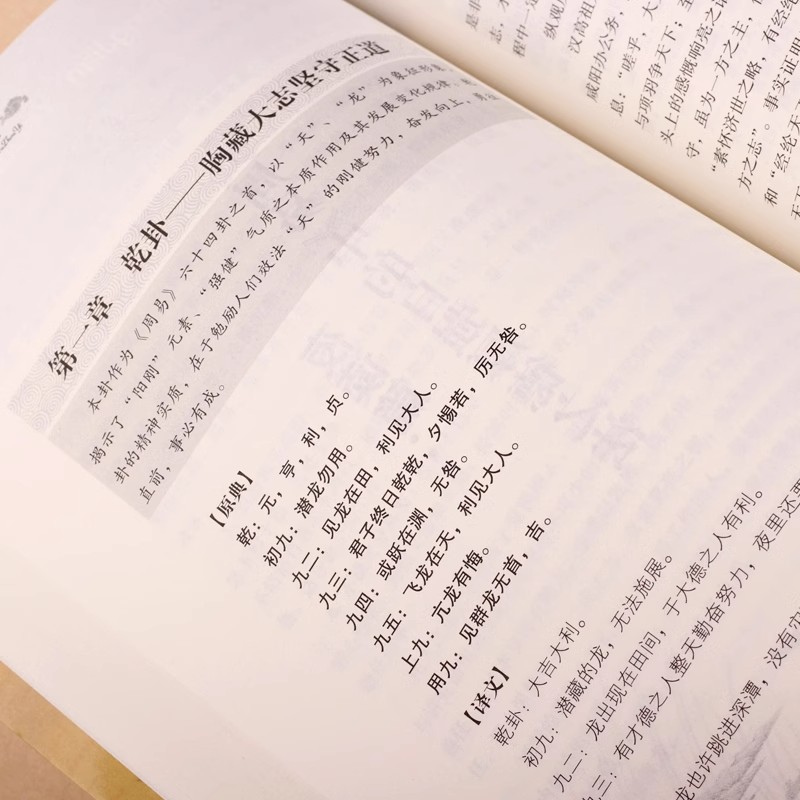 第一章 乾卦——胸藏大志坚守正道
本卦作为《周易》六十四卦之首，以“天”、“龙”为象征形象，
揭示了“阳刚”元素、“强健”气质之本质作用及其发展变化规律，
卦的精神实质，在于勉励人们效法“天”的刚健努力，奋发向上，勇往
直前，事必有成。
【原典】
乾：元，亨，利，贞。
初九：潜龙勿用。
九二：见龙在田，利见大人。
九三：君子终日乾乾，夕惕若，厉无咎。
九四：或跃在渊，无咎。
九五：飞龙在天，利见大人。
上九：亢龙有悔。
用九：见群龙无首，吉。
【译文】
乾卦：大吉大利。
初九：潜藏的龙，无法施展。
九二：龙出现在田间，于大德之人有利。
九三：有才德之人整天勤奋努力，夜里还要
龙也许跳进深潭，没有灾
是非
志，
程中一道
纵观
汉高祖
咸阳办公务，
息：“嗟乎，大
与项羽争天下；至
头上的感慨响亮之
守，虽为一方之主，
“素怀济世之略，有经纶
方之志”。事实证明
和“经纶天下